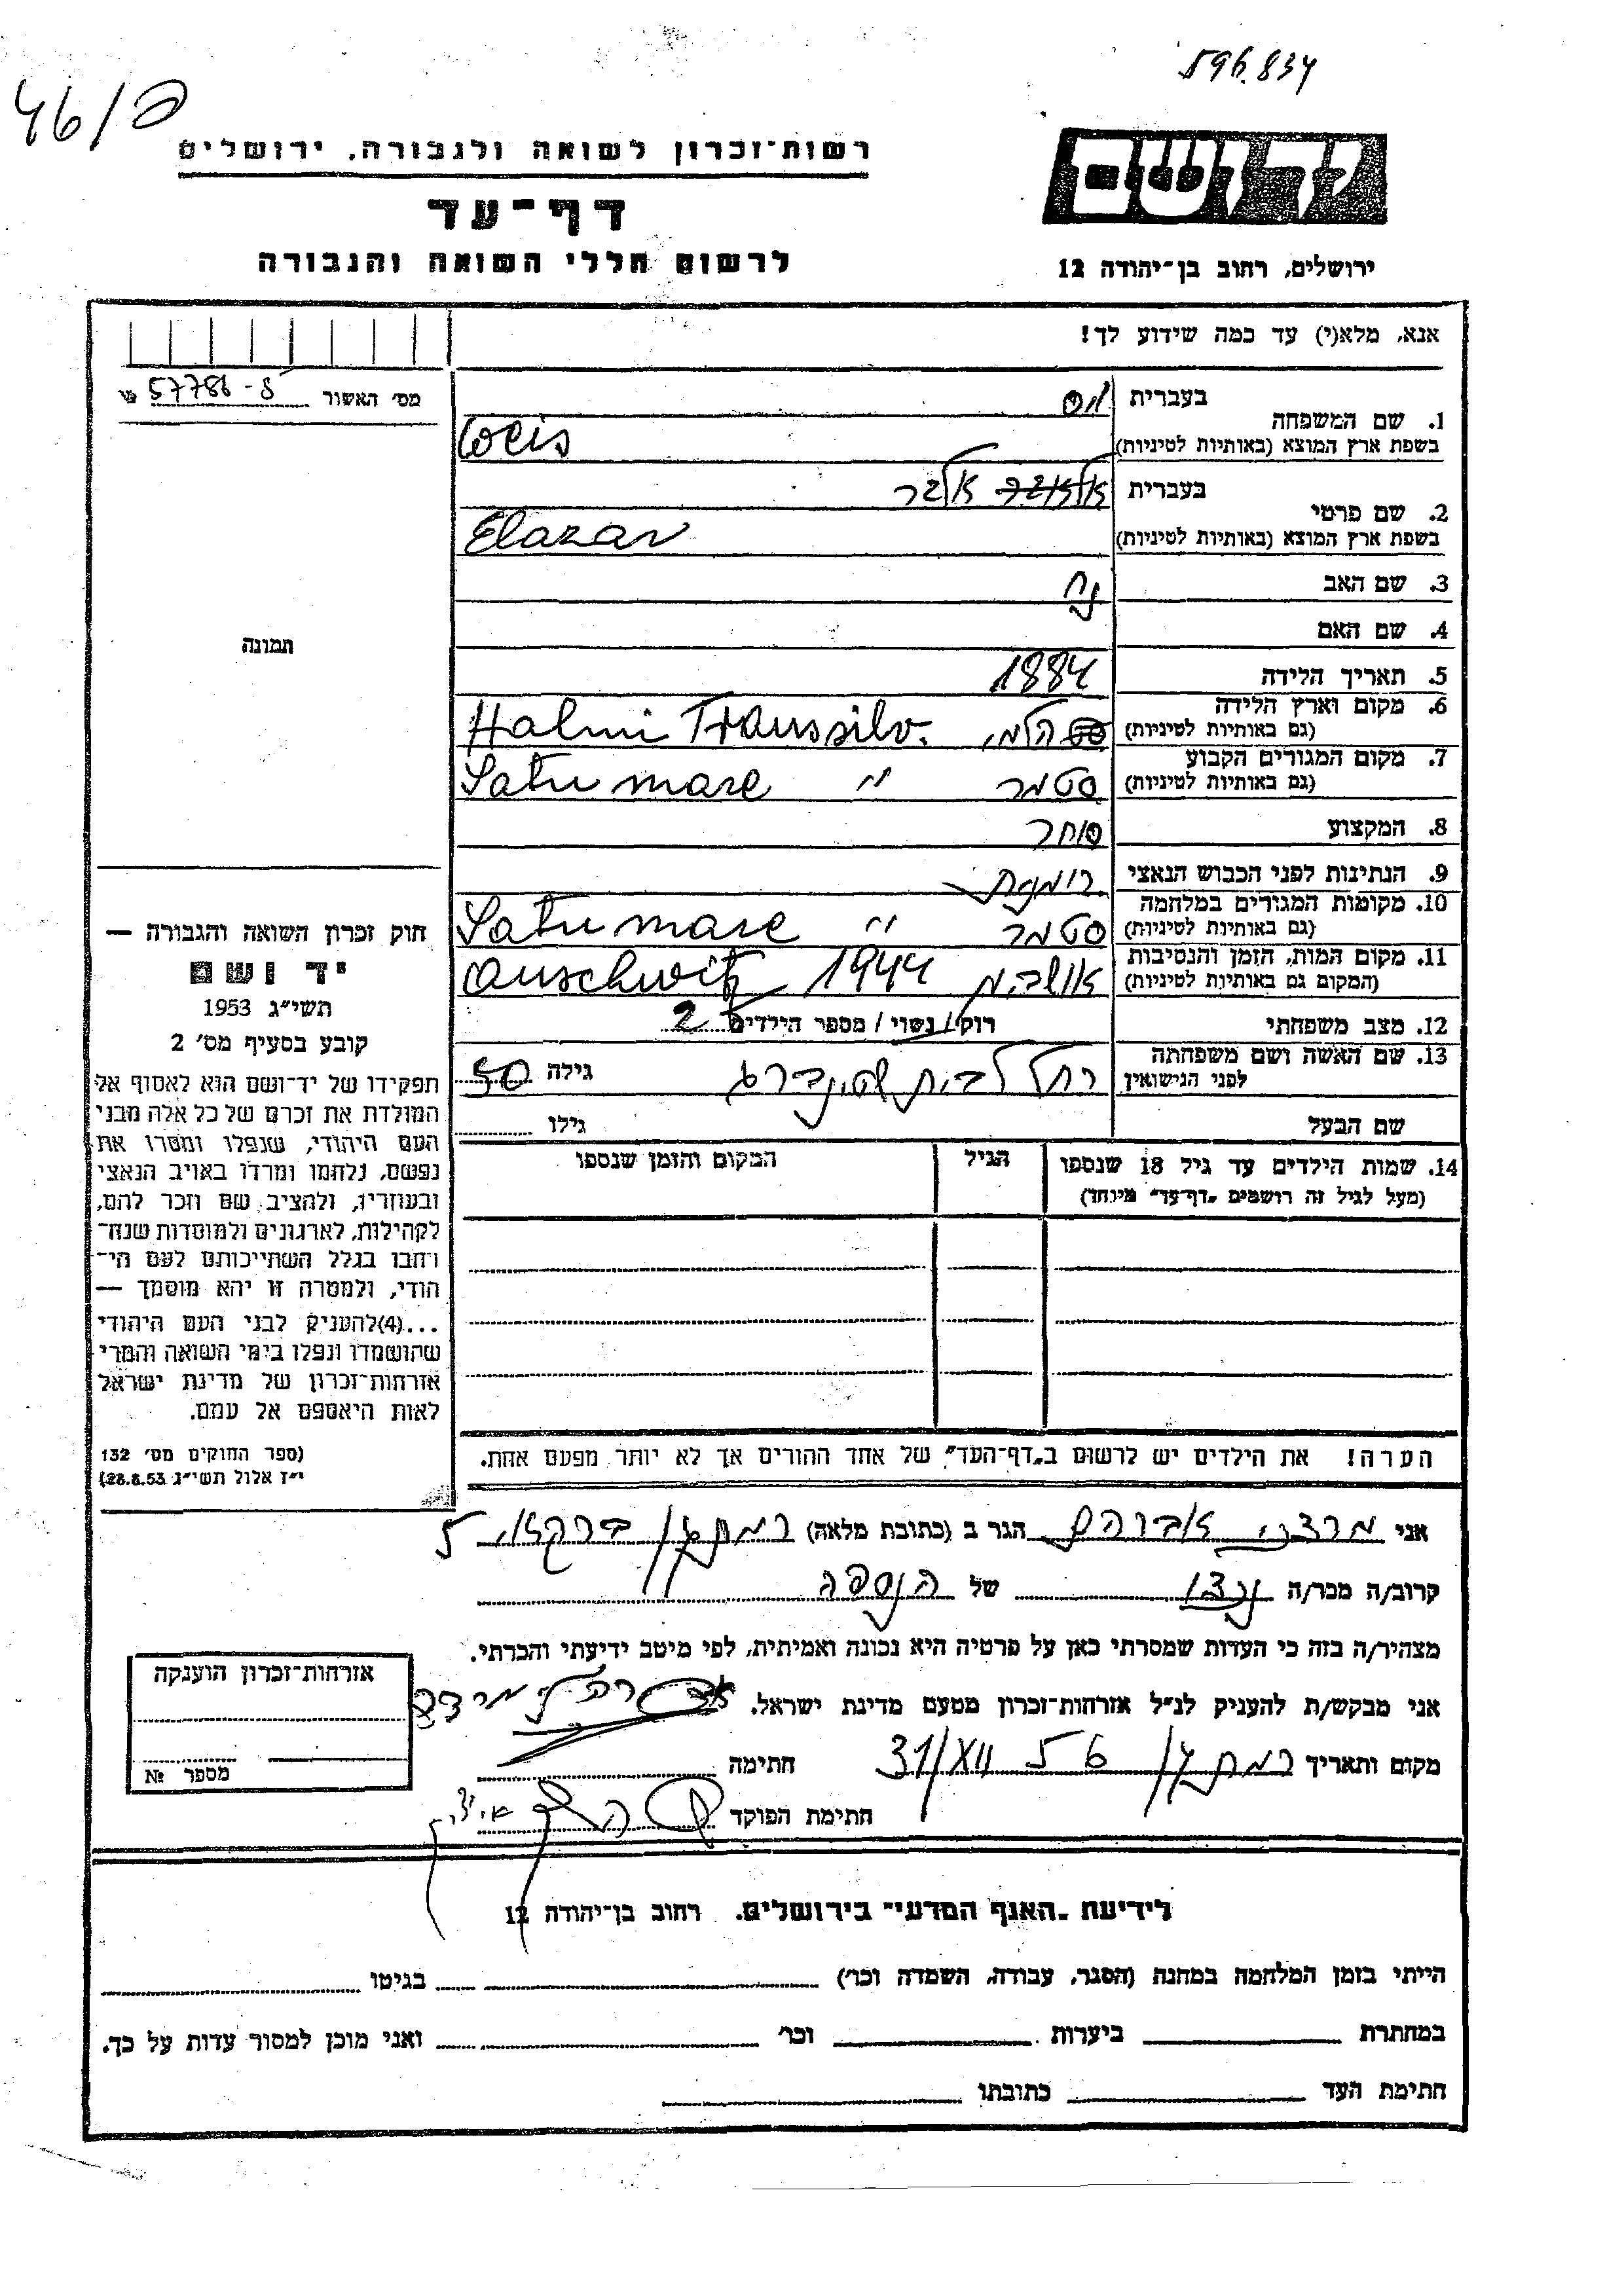 596.834
46/פ
רשות־זכרון לשואה ולגבורה, ירושלים
דף־עד
לרשום חללי השואה והגבורה
יד ושם
ירושלים, רחוב בן־יהודה 12
אנא, מלא(י) עד כמה שידוע לך!
מס׳ האשור 57786-8
תמונה
1. שם המשפחה
בעברית ויס
בשפת ארץ המוצא (באותיות לטיניות) Weis
2. שם פרטי
בעברית אלעזר
בשפת ארץ המוצא (באותיות לטיניות) Elazar
3. שם האב נח
4. שם האם
5. תאריך הלידה 1884
6. מקום וארץ הלידה הלמי Halmi Transsilv.
(גם באותיות לטיניות)
7. מקום המגורים הקבוע סטמר " Satu mare
(גם באותיות לטיניות)
8. המקצוע סוחר
9. הנתינות לפני הכבוש הנאצי רומנית
10. מקומות המגורים במלחמה סטמר " Satu mare
(גם באותיות לטיניות)
11. מקום המות, הזמן והנסיבות 1944 Auschwitz
(המקום גם באותיות לטיניות)
12. מצב משפחתי רוק/נשוי/ מספר הילדים 2
13. שם האשה ושם משפחתה רחל לבית גילה 50
לפני הנישואין
שם הבעל גילו
14. שמות הילדים עד גיל 18 שנספו הגיל המקום והזמן שנספו
(מעל לגיל זה רושמים „דף־עד״ מיוחד)
הערה! את הילדים יש לרשום ב„דף־העד״ של אחד ההורים אך לא יותר מפעם אחת.
חוק זכרון השואה והגבורה —
יד ושם
תשי״ג 1953
קובע בסעיף מס׳ 2
תפקידו של יד־ושם הוא לאסוף אל
המולדת את זכרם של כל אלה מבני
העם היהודי, שנפלו ומסרו את
נפשם, נלחמו ומרדו באויב הנאצי
ובעוזריו, ולהציב שם וזכר להם,
לקהילות, לארגונים ולמוסדות שנח־
רחבו בגלל השתייכותם לעם הי־
הודי, ולמטרה זו יהא מוסמך —
...(4)להעניק לבני העם היהודי
שהושמדו ונפלו בימי השואה והמרי
אזרחות־זכרון של מדינת ישראל
לאות היאספם אל עמם.
(ספר החוקים מס׳ 132
י״ז אלול תשי״ג 28.8.53)
אני אברהם הגר ב (כתובת מלאה) רמת גן 5
קרוב/ה מכר/ה נכדו של הנספה
מצהיר/ה בזה כי העדות שמסרתי כאן על פרטיה היא נכונה ואמיתית, לפי מיטב ידיעתי והכרתי.
אני מבקש/ת להעניק לנ״ל אזרחות־זכרון מטעם מדינת ישראל.
מקום ותאריך רמת גן 31/XII 56 חתימה
חתימת הפוקד
אזרחות־זכרון הוענקה
מספר №
לידיעת „האגף המדעי״ בירושלים. רחוב בן־יהודה 12
הייתי בזמן המלחמה במחנה (הסגר, עבודה, השמדה וכו׳) בגיטו
במחתרת ביערות וכו׳ ואני מוכן למסור עדות על כך.
חתימת העד כתובתו